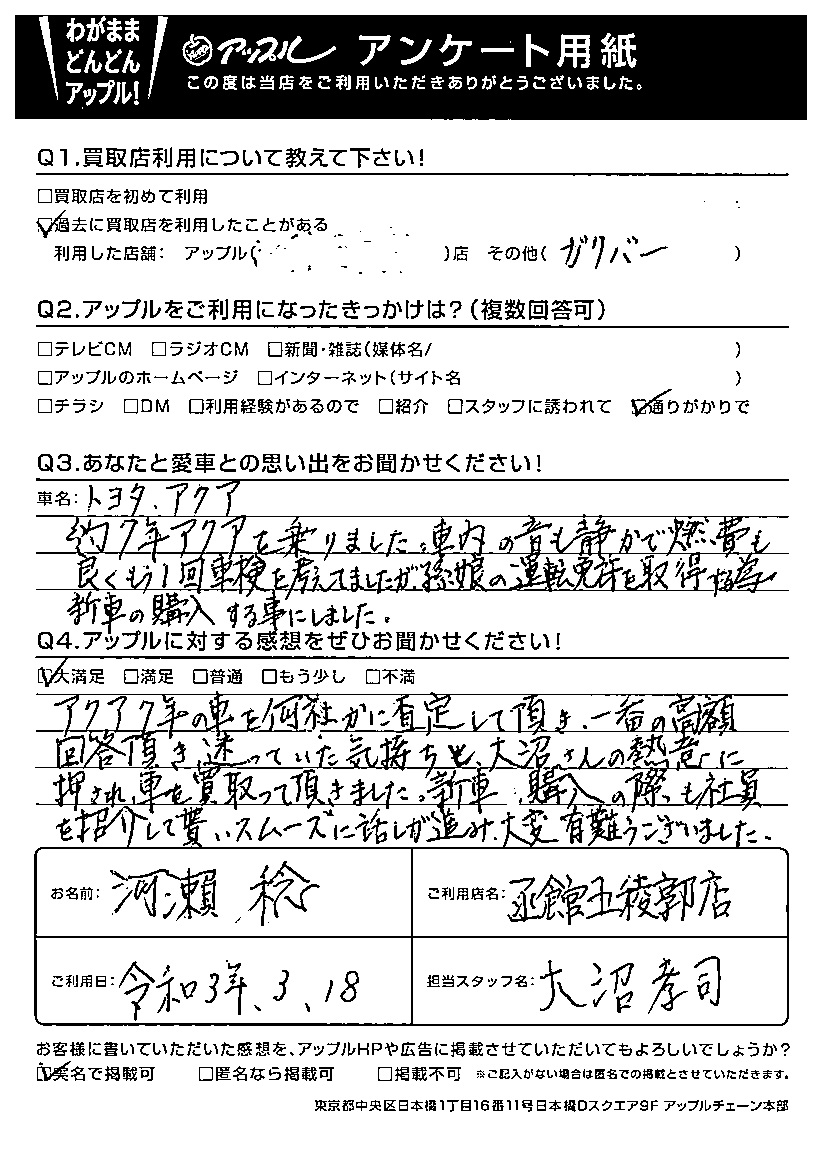 わがまま
どんどん
アップル!
アップル アンケート用紙
この度は当店をご利用いただきありがとうございました。
Q1.買取店利用について教えて下さい!
□買取店を初めて利用
☑過去に買取店を利用したことがある
利用した店舗: アップル( )店 その他( ガリバー )
Q2.アップルをご利用になったきっかけは?(複数回答可)
□テレビCM □ラジオCM □新聞・雑誌(媒体名/ )
□アップルのホームページ □インターネット(サイト名 )
□チラシ □DM □利用経験があるので □紹介 □スタッフに誘われて ☑通りがかりで
Q3.あなたと愛車との思い出をお聞かせください!
車名: トヨタ、アクア
約7年アクアを乗りました。車内の音も静かで燃費も
良くもう1回車検を考えてましたが、孫娘の運転免許を取得する為
新車の購入する事にしました。
Q4.アップルに対する感想をぜひお聞かせください!
☑大満足 □満足 □普通 □もう少し □不満
アクア7年の車を何社かに査定して頂き、一番の高額
回答頂き、迷っていた気持ちも、大沼さんの熱意に
押され、車を買取って頂きました。新車、購入の際も社員
を招介して貰い、スムーズに話しが進み、大変有難うございました。
お名前: 河瀬 稔
ご利用店名: 函館五稜郭店
ご利用日: 令和3年、3、18
担当スタッフ名: 大沼孝司
お客様に書いていただいた感想を、アップルHPや広告に掲載させていただいてもよろしいでしょうか?
☑実名で掲載可 □匿名なら掲載可 □掲載不可 ※ご記入がない場合は匿名での掲載とさせていただきます。
東京都中央区日本橋1丁目16番11号日本橋Dスクエア9F アップルチェーン本部